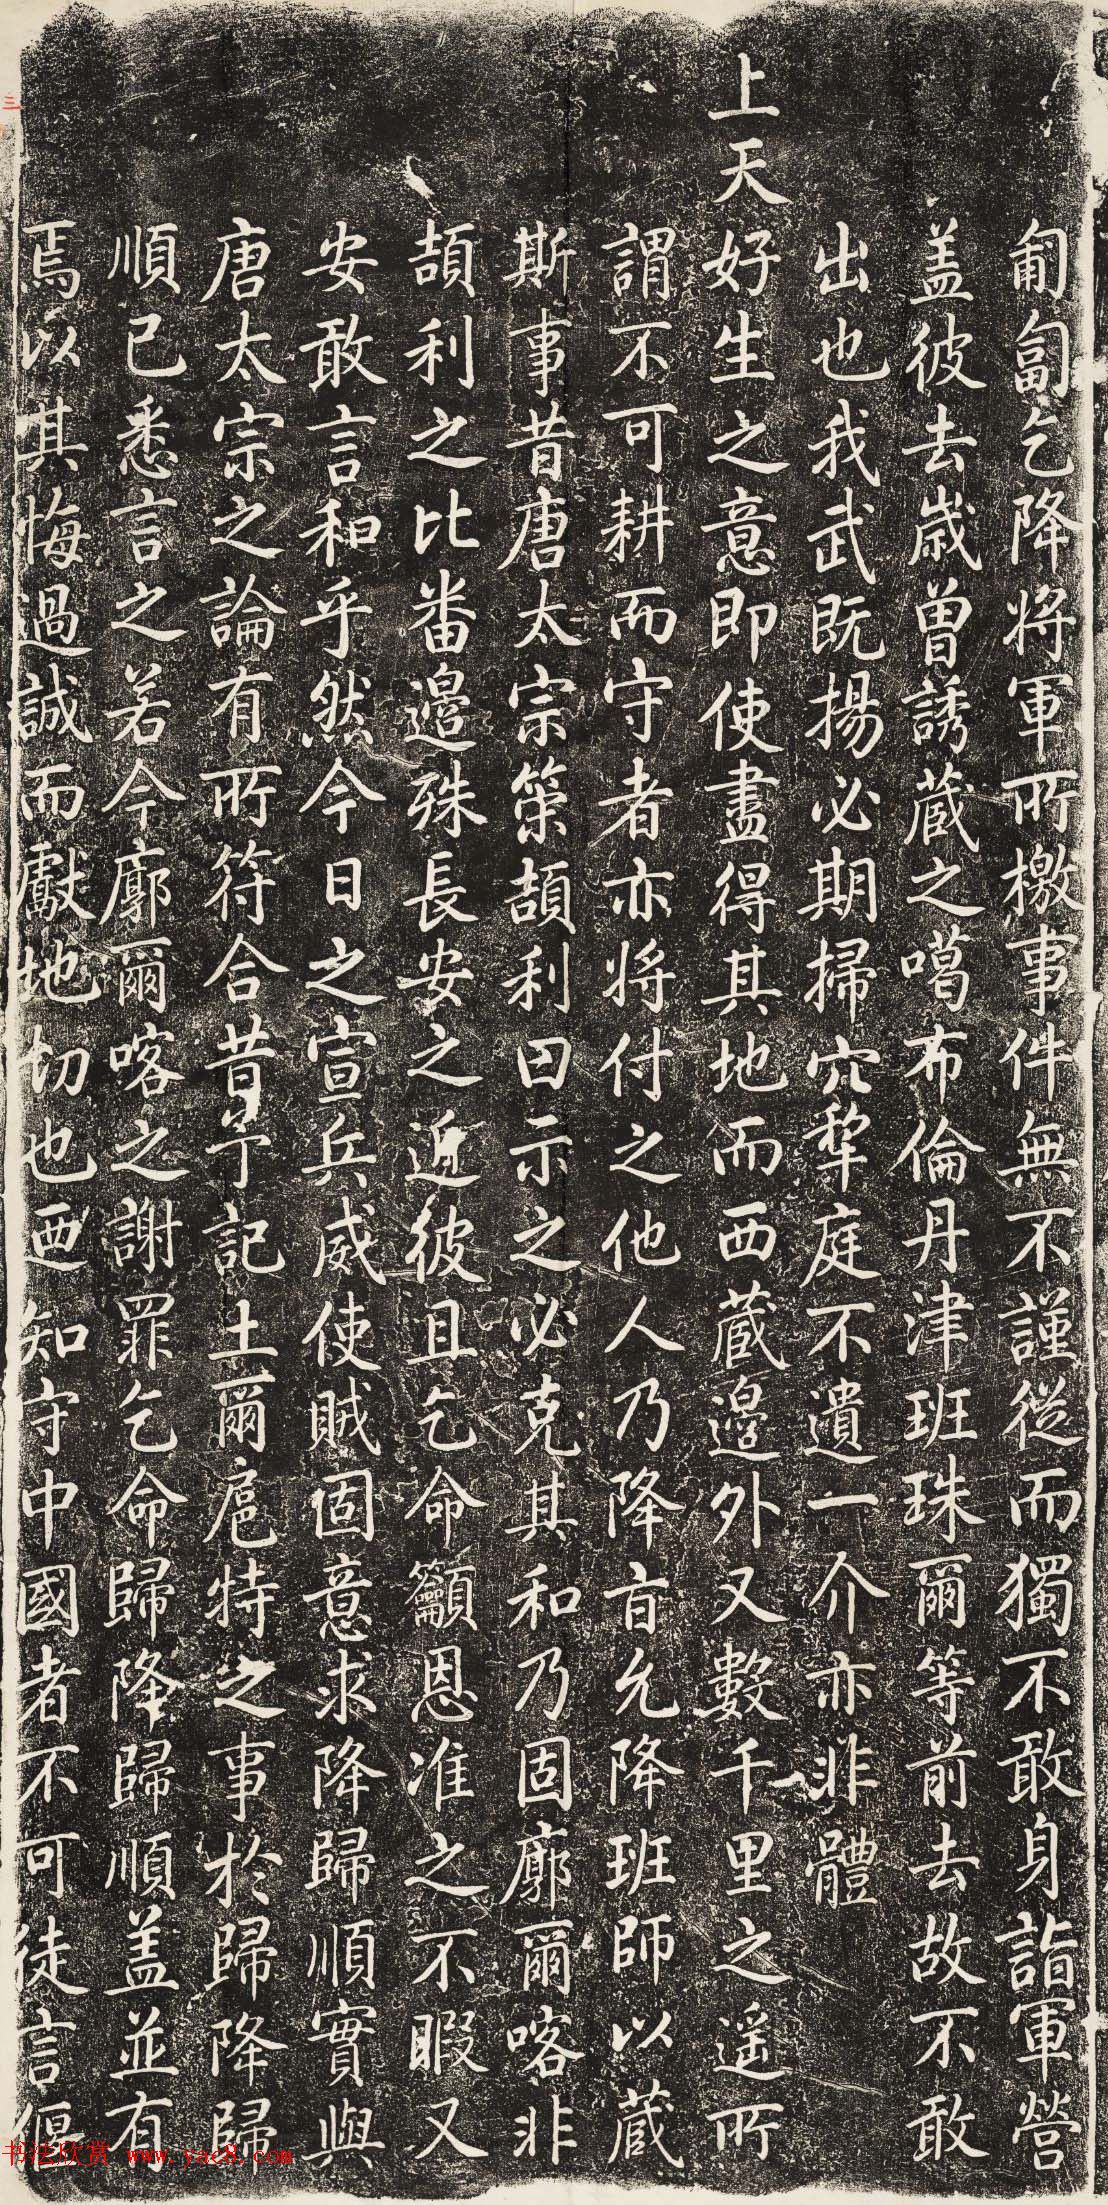 匍匐乞降將軍所檄事件無不謹從而獨不敢身詣軍營
盖彼去歲曾誘藏之噶布倫丹津班珠爾等前去故不敢
出也我武既揚必期掃穴犂庭不遺一介亦非體
上天好生之意即使盡得其地而西藏邊外又數千里之遥所
謂不可耕而守者亦將付之他人乃降㫖允降班師以蔵
斯事昔唐太宗策頡利曰示之必克其和乃固廓爾喀非
頡利之比番邊殊長安之近彼且乞命籲恩准之不暇又
安敢言和乎然今日之宣兵威使賊固意求降歸順實與
唐太宗之論有所符合昔予記土爾扈特之事於歸降歸
順已悉言之若今廓爾喀之謝罪乞命歸降歸順盖並有
焉以其悔過誠而獻地切也迺知守中國者不可徒言偃
三
书法欣赏 www.yac8.com